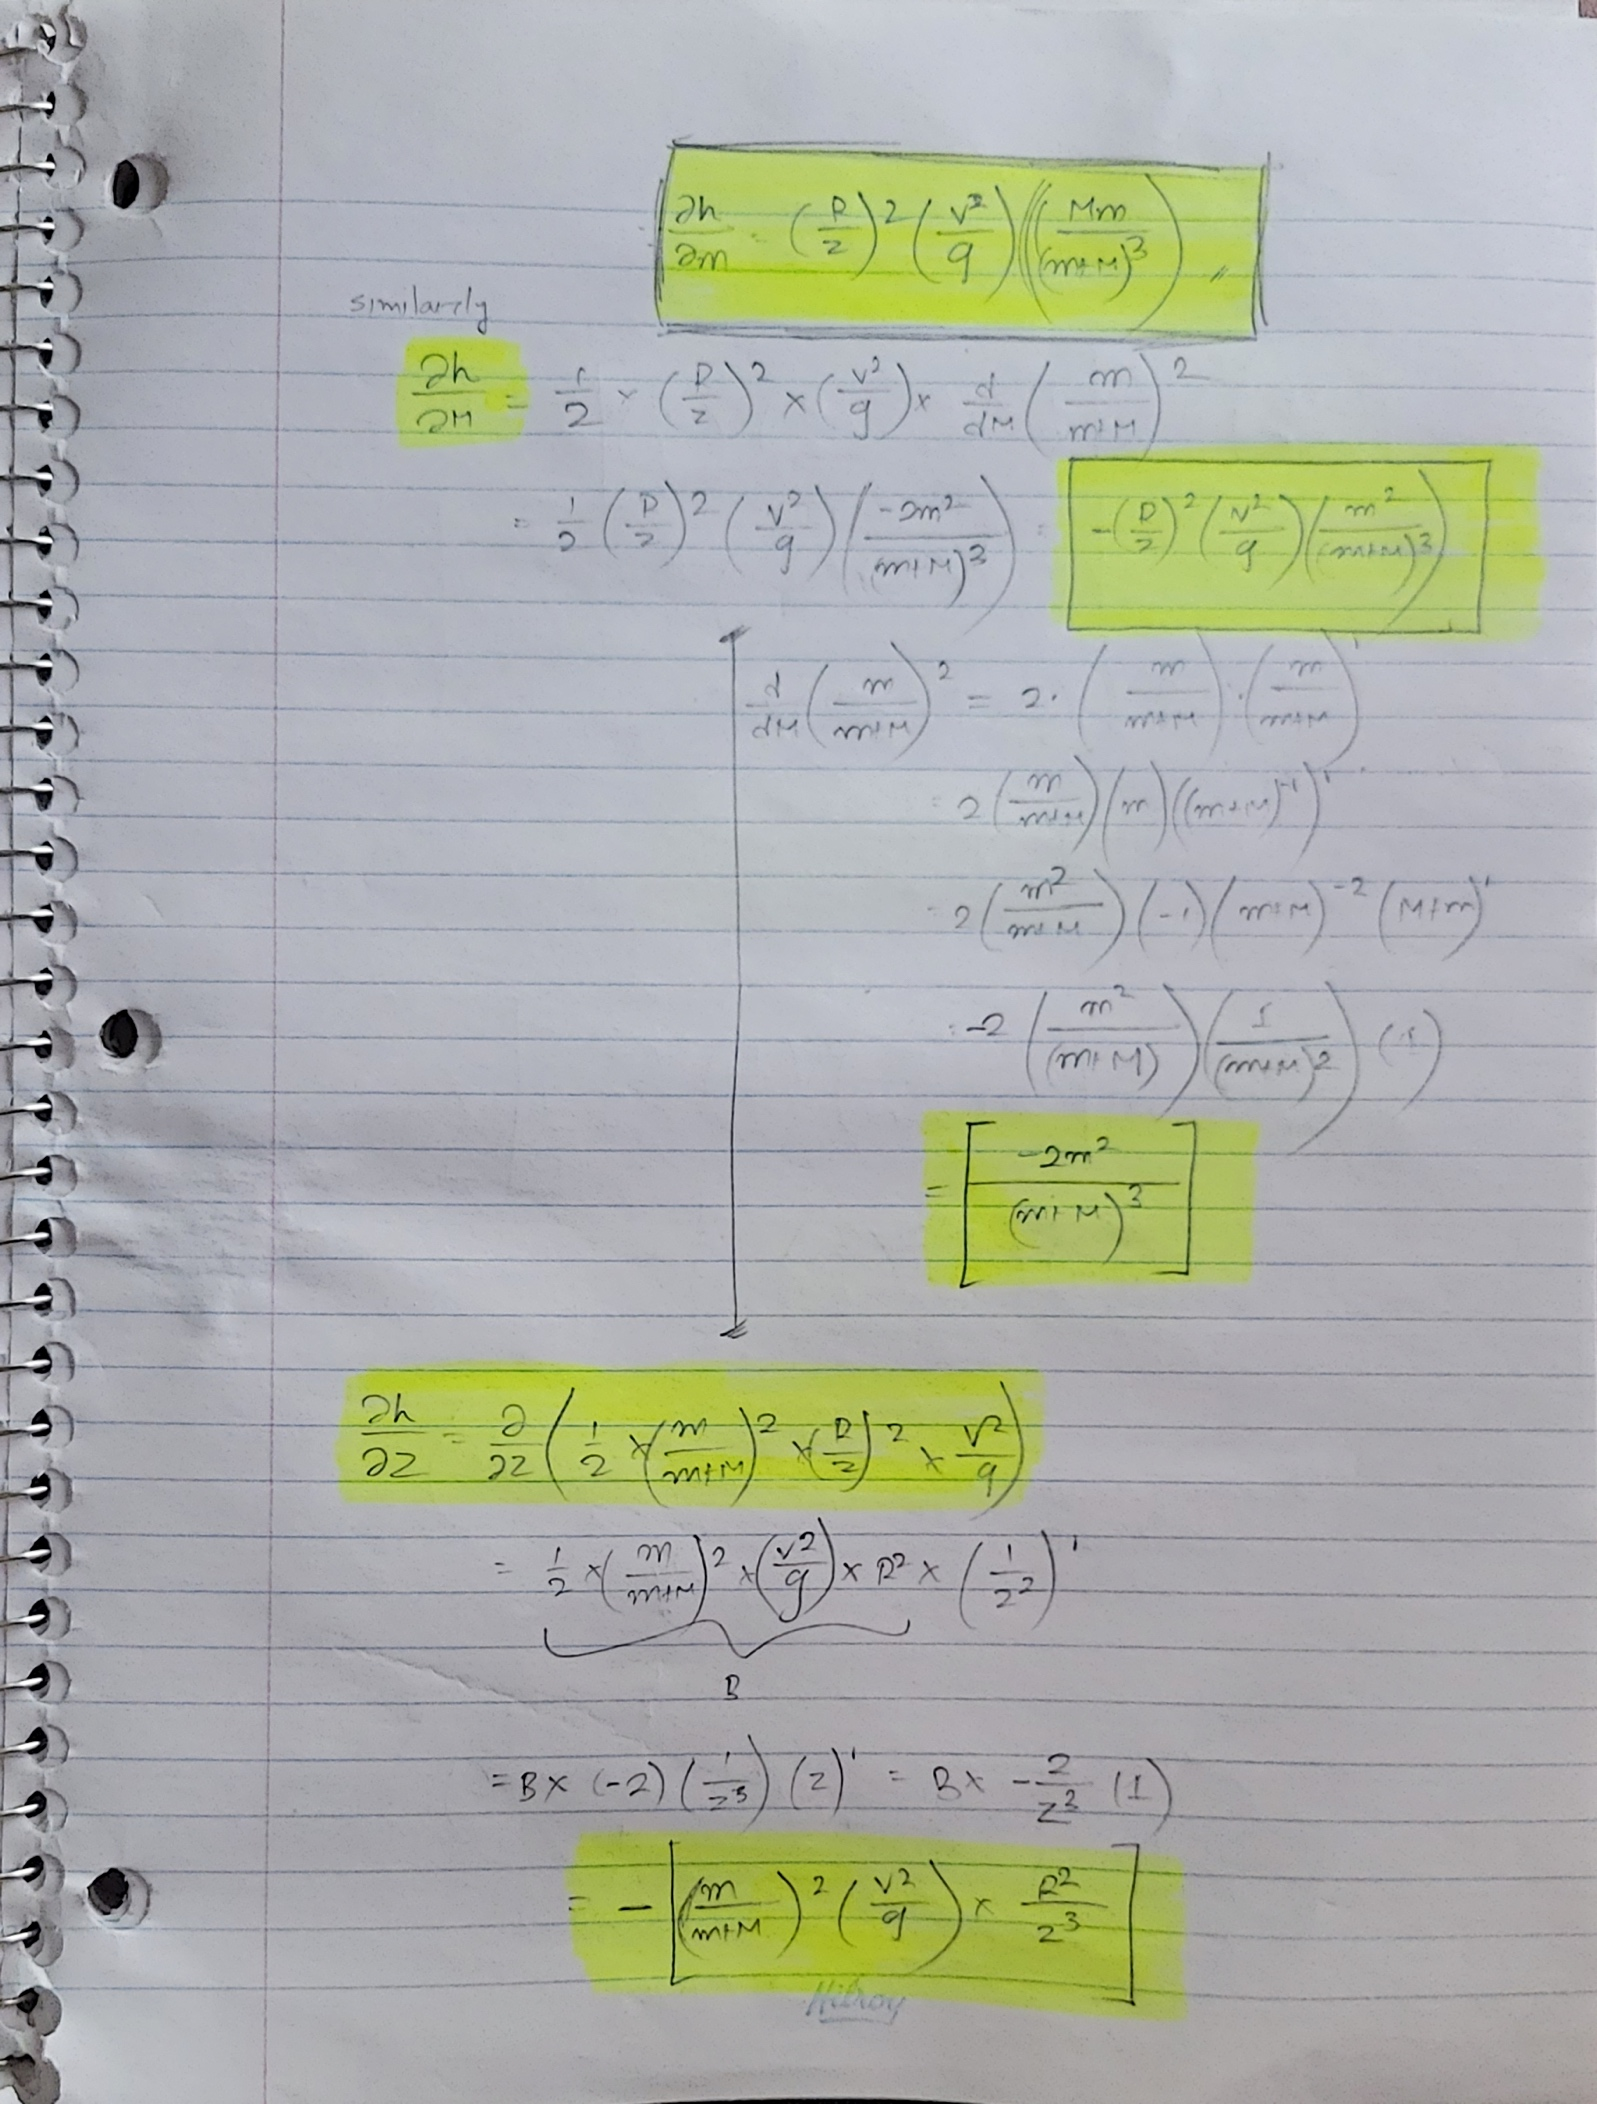 ∂h/∂m = (R/z)^2 (v^2/g) (Mm/(m+M)^3) //
similarely
∂h/∂M = 1/2 × (R/z)^2 × (v^2/g) × d/dM (m/(m+M))^2
= 1/2 (R/z)^2 (v^2/g) (-2m^2/(m+M)^3) = -(R/z)^2 (v^2/g) (m^2/(m+M)^3)
d/dM (m/(m+M))^2 = 2 · (m/(m+M)) · (m/(m+M))'
= 2 (m/(m+M)) (m) ((m+M)^-1)'
= 2 (m^2/(m+M)) (-1) (m+M)^-2 (M+m)'
= -2 (m^2/(m+M)) (1/(m+M)^2) (1)
= [-2m^2/(m+M)^3]
∂h/∂z = ∂/∂z (1/2 × (m/(m+M))^2 × (R/z)^2 × v^2/g)
= 1/2 × (m/(m+M))^2 × (v^2/g) × R^2 × (1/z^2)'
B
= B × (-2) (1/z^3) (z)' = B × -2/z^3 (1)
= - [(m/(m+M))^2 (v^2/g) × R^2/z^3]
Hilroy